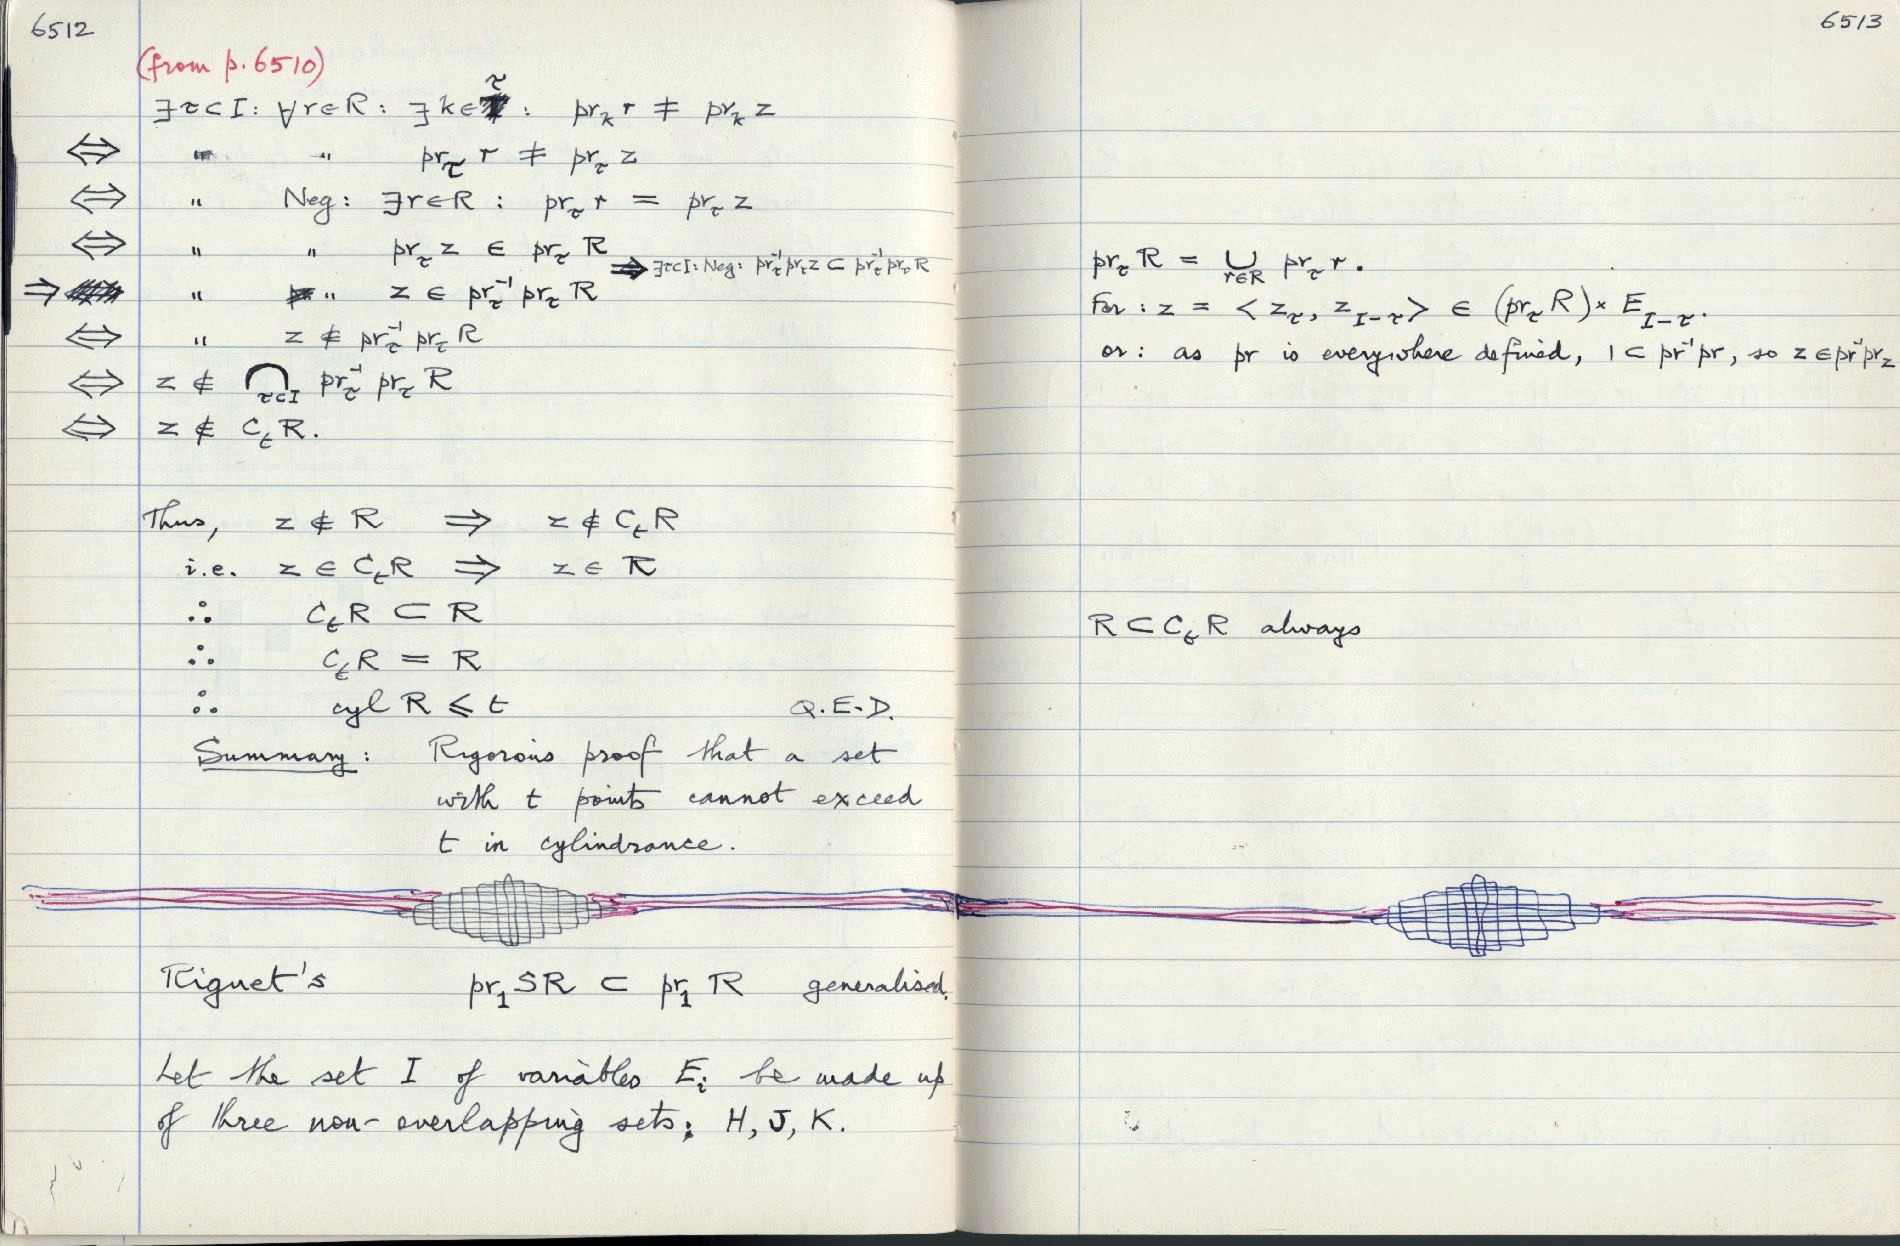 6512
(from p. 6510)
∃τ⊂I: ∀r∈R: ∃k∈τ: pr_k r ≠ pr_k z
⇔ " " pr_τ r ≠ pr_τ z
⇔ " Neg: ∃r∈R : pr_τ r = pr_τ z
⇔ " " pr_τ z ∈ pr_τ R
⇒ ∃τ⊂I: Neg: pr_τ⁻¹ pr_τ z ⊂ pr_τ⁻¹ pr_τ R
⇒ " " z ∈ pr_τ⁻¹ pr_τ R
⇔ " z ∉ pr_τ⁻¹ pr_τ R
⇔ z ∉ ⋂_{τ⊂I} pr_τ⁻¹ pr_τ R
⇔ z ∉ C_t R.
Thus, z ∉ R ⇒ z ∉ C_t R
i.e. z ∈ C_t R ⇒ z ∈ R
∴ C_t R ⊂ R
∴ C_t R = R
∴ cyl R ⩽ t Q.E.D.
Summary: Rigorous proof that a set
with t points cannot exceed
t in cylindrance.
Riguet's pr₁SR ⊂ pr₁R generalised.
Let the set I of variables E_i be made up
of three non-overlapping sets; H, J, K.
6513
pr_τ R = ⋃_{r∈R} pr_τ r.
For: z = < z_τ, z_{I-τ} > ∈ (pr_τ R) × E_{I-τ}.
or: as pr is everywhere defined, 1 ⊂ pr⁻¹pr, so z ∈ pr⁻¹pr z
R ⊂ C_t R always